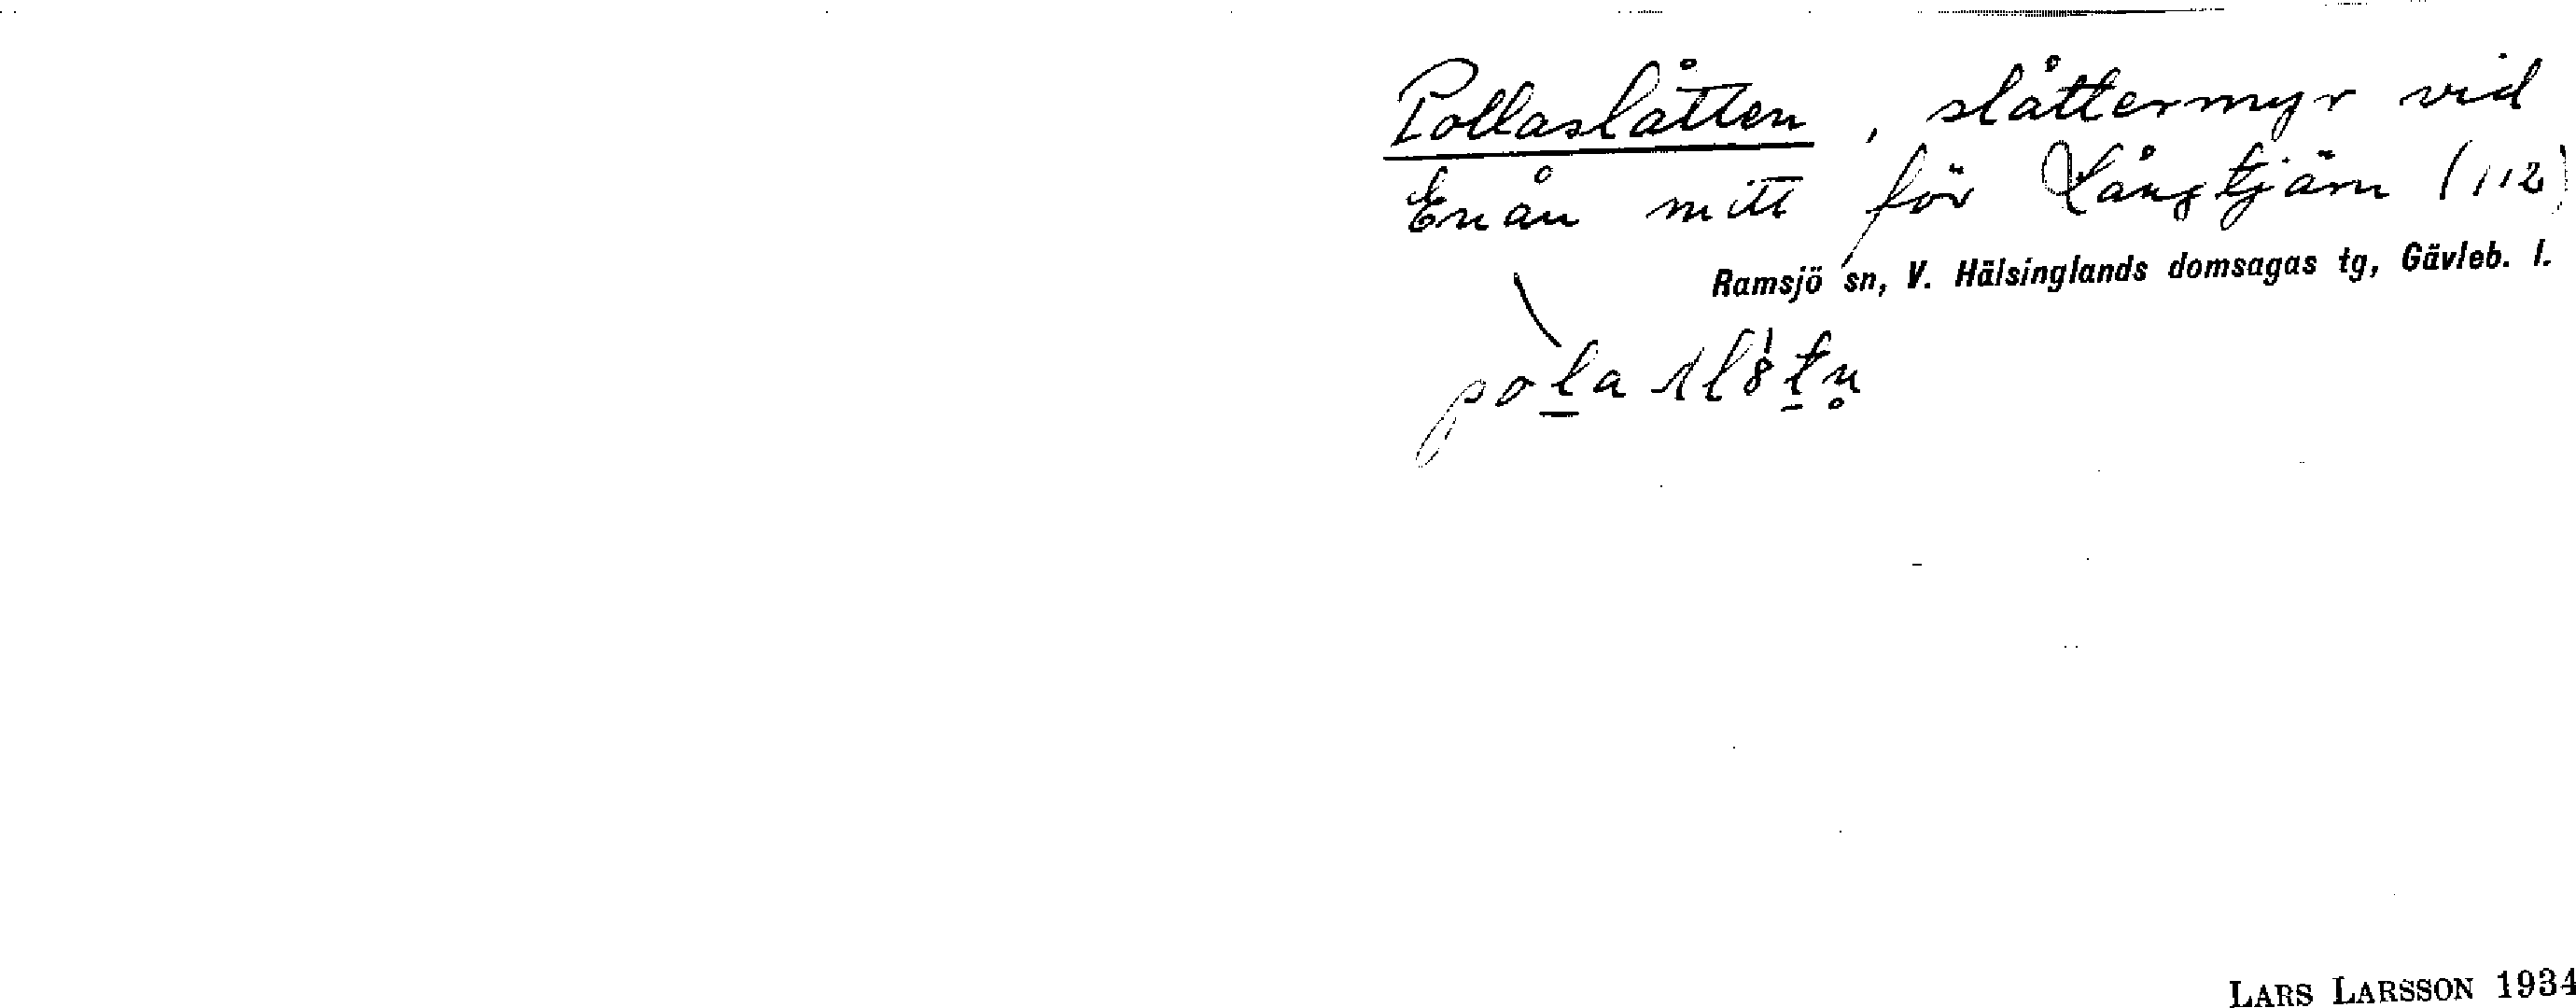 Pollaslåtten, slåttermyr vid
Enån mitt för Långtjärn (112)
Ramsjö sn, V. Hälsinglands domsagas tg, Gävleb. l.
LARS LARSSON 1934